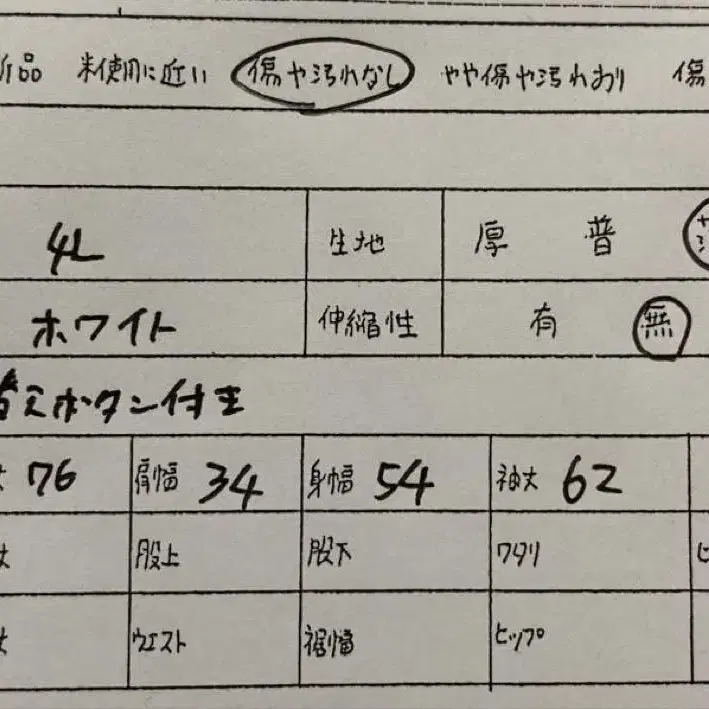 新品 未使用に近い 傷や汚れなし やや傷や汚れあり 傷
4L 生地 厚 普
ホワイト 伸縮性 有 無
替えボタン付き
丈 76 肩幅 34 身幅 54 袖丈 62
丈 股上 股下 ワタリ ヒ
丈 ウエスト 裾幅 ヒップ